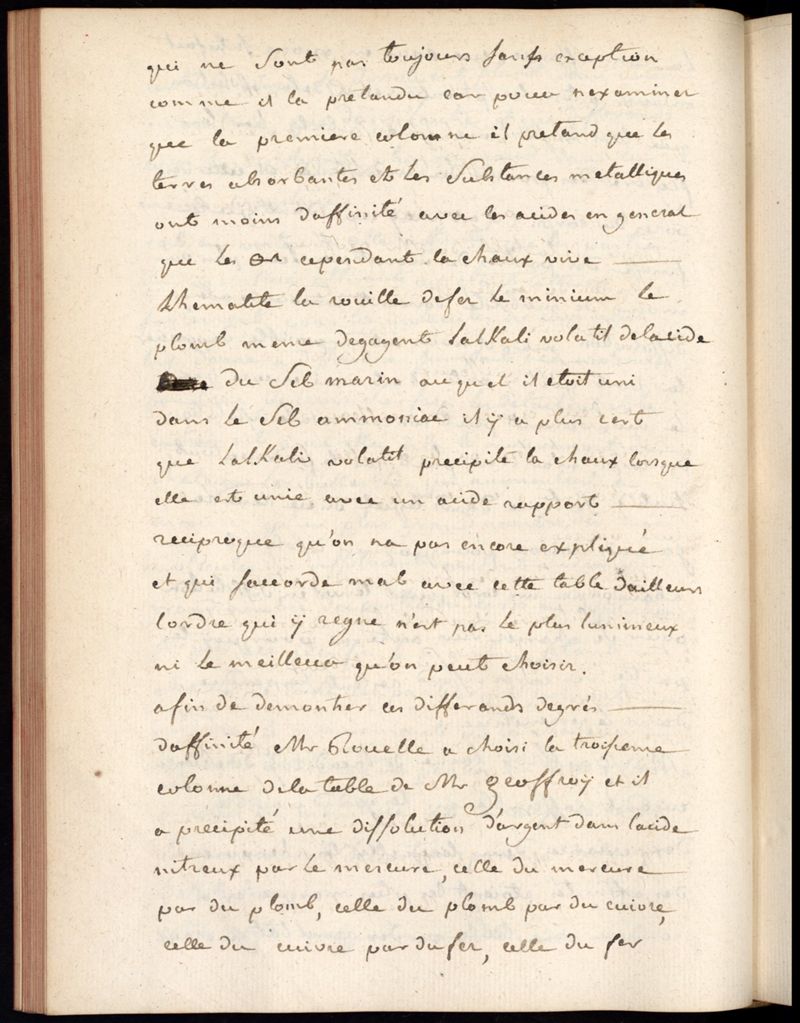 qui ne sont pas toujours sans exception
comme il la pretandu car pour nexaminer
que la premiere colomne il pretand que les
terres absorbantes et les substances metalliques
ont moins daffinité avec les acides en general
que les cependant la chaux vive ———
Lhematite la rouille defer le minium le
plomb meme degagent Lalkali volatil delacide
du Sel marin auquel il etoit uni
dans le Sel ammoniac il ÿ a plus cest
que Lalkali volatil precipite la chaux lorsque
elle est unie avec un acide rapport ———
reciproque qu'on na pas encore expliqué
et qui saccorde mal avec cette table dailleurs
lordre qui ÿ regne n'est pas le plus lumineux
ni le meilleur qu'on peut choisir.
afin de demontrer ces differands degrés ———
daffinité Mr Rouelle a choisi la troisieme
colonne dela table de Mr geoffroÿ et il
a precipité une dissolution d'argent dans lacide
nitreux par le mercure, celle du mercure
par du plomb, celle du plomb par du cuivre,
celle du cuivre par du fer, celle du fer